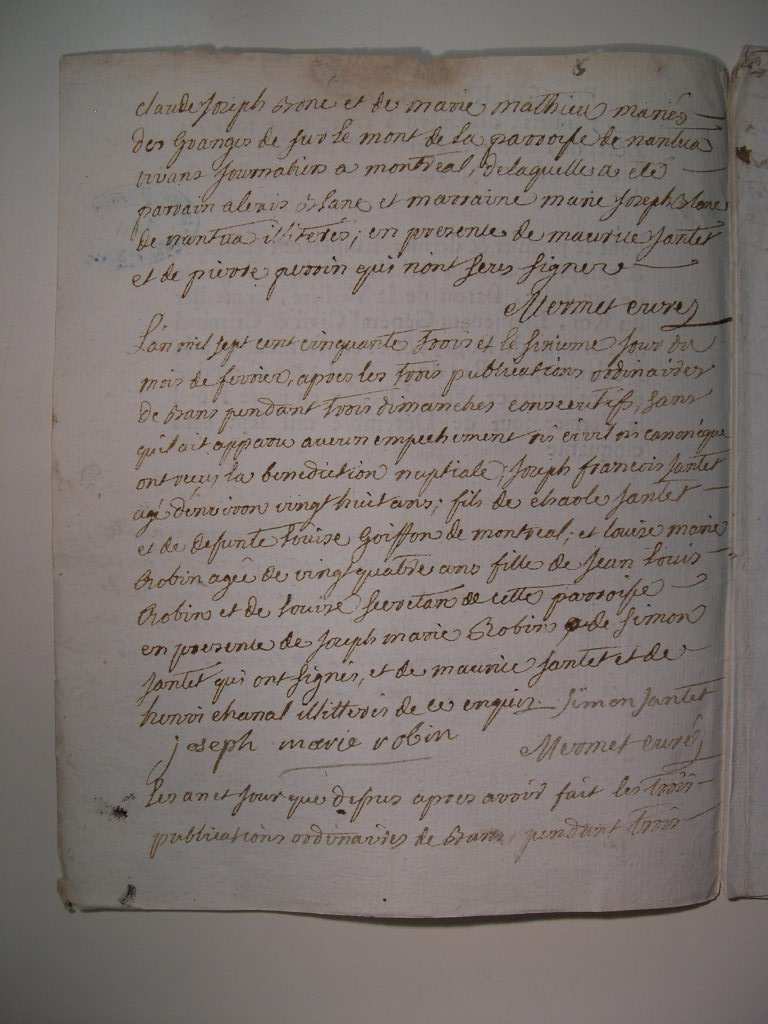 claude Joseph Bone et de marie mathieu mariés
des Granges de sur le mont de la parroisse de nantua
vivans Journaliers a montreal, de laquelle a eté
parrain alexis Blanc et marraine marie Joseph Blanc
de nantua illiterés; en presence de maurice Jantet
et de pierre perrin qui n'ont seus signer
Mermet curé
L'an mil sept cent cinquante trois et le sixieme Jour du
mois de fevrier, apres les trois publications ordinaires
de Bans pendant trois dimanches consecutifs, sans
qu'il ait apparu aucun empechement ni civil ni canonique
ont recus la benediction nuptiale; Joseph francois Jantet
agé d'environ vingt huit ans; fils de charle Jantet
et de defunte Louise Goiffon de montreal; et louise marie
Robin agée de vingt quatre ans fille de Jean Louis
Robin et de louise secretan de cette parroisse
en presence de Joseph marie Robin de Simon
Jantet qui ont signés, et de maurice Jantet et de
henri chanal illitteris de ce enquis. Simon Jantet
joseph marie robin Mermet curé
Les an et Jour que depus apres avoir fait les trois
publications ordinaires de Bans pendant trois